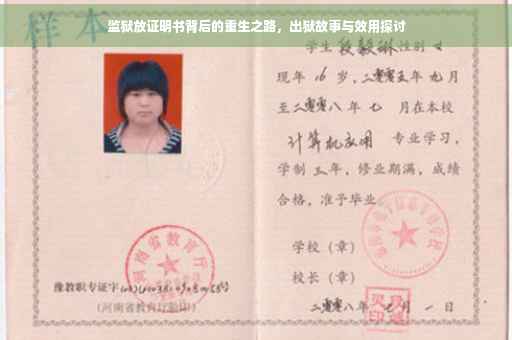 监狱放证明书背后的重生之路，出狱故事与效用探讨
样本
学生段毅琳性别女
现年16岁，二零零五年九月
至二零零八年七月在本校
计算机应用专业学习，
学制三年，修业期满，成绩
合格，准予毕业
学校（章）
校长（章）
二零零八年七月一日
河南省教育厅
豫教职专证字
（河南省教育厅验印）